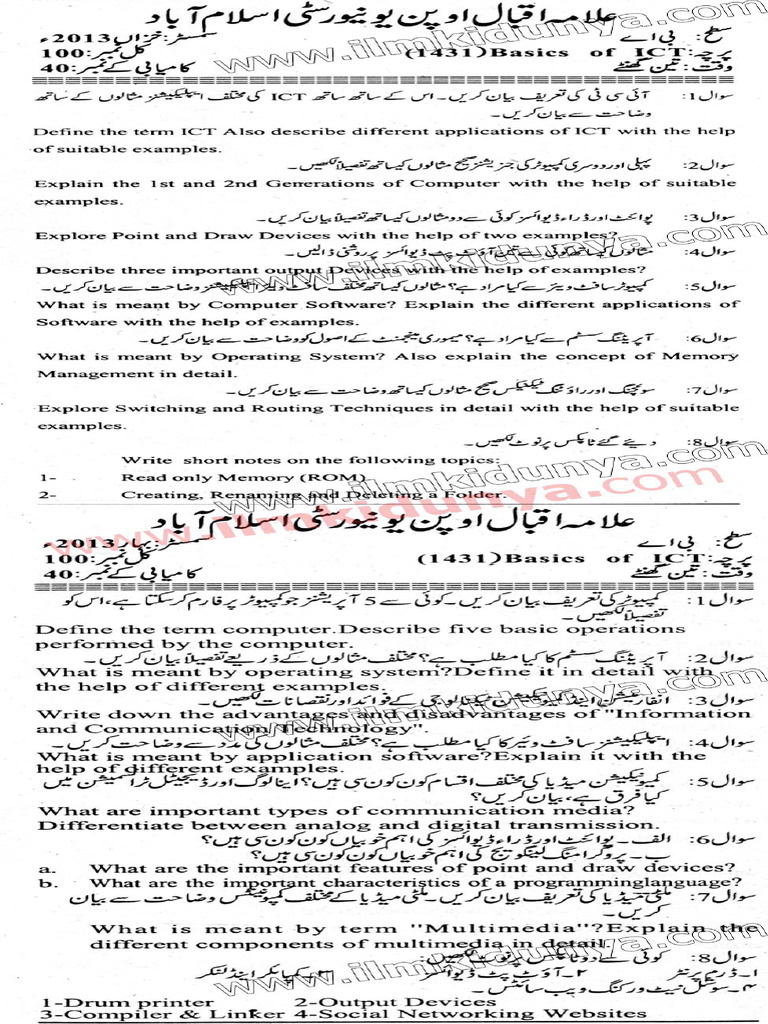 علامہ اقبال اوپن یونیورسٹی اسلام آباد
سطح: بی اے سمسٹر: خزاں 2013ء
پرچہ: (1431) Basics of ICT کل نمبر: 100
وقت: تین گھنٹے کامیابی کے نمبر: 40
www.ilmkidunya.com
سوال 1: آئی سی ٹی کی تعریف بیان کریں۔ اس کے ساتھ ساتھ ICT کی مختلف ایپلیکیشنز مثالوں کے ساتھ
وضاحت سے بیان کریں۔
Define the term ICT Also describe different applications of ICT with the help
of suitable examples.
سوال 2: پہلی اور دوسری کمپیوٹر کی جنریشنز صحیح مثالوں کیساتھ تفصیلاً لکھیں۔
Explain the 1st and 2nd Generations of Computer with the help of suitable
examples.
سوال 3: پوائنٹ اور ڈراء ڈیوائسز کوئی سے دو مثالوں کیساتھ تفصیلاً بیان کریں۔
Explore Point and Draw Devices with the help of two examples?
www.ilmkidunya.com
سوال 4: مثالوں کیساتھ کوئی سے تین آؤٹ پٹ ڈیوائسز پر روشنی ڈالیں۔
Describe three important output Devices with the help of examples?
سوال 5: کمپیوٹر سافٹ ویئر سے کیا مراد ہے؟ مثالوں کیساتھ مختلف سافٹ ویئر ایپلیکیشنز وضاحت سے بیان کریں۔
What is meant by Computer Software? Explain the different applications of
Software with the help of examples.
سوال 6: آپریٹنگ سسٹم سے کیا مراد ہے؟ میموری مینجمنٹ کے اصول کو وضاحت سے بیان کریں۔
What is meant by Operating System? Also explain the concept of Memory
Management in detail.
سوال 7: سوئچنگ اور راؤٹنگ ٹیکنیکس صحیح مثالوں کیساتھ وضاحت سے بیان کریں۔
Explore Switching and Routing Techniques in detail with the help of suitable
examples.
سوال 8: دیئے گئے ٹاپکس پر نوٹ لکھیں۔
Write short notes on the following topics:
1- Read only Memory (ROM)
2- Creating, Renaming and Deleting a Folder.
www.ilmkidunya.com
www.ilmkidunya.com
علامہ اقبال اوپن یونیورسٹی اسلام آباد
سطح: بی اے سمسٹر: بہار 2013ء
پرچہ: (1431) Basics of ICT کل نمبر: 100
وقت: تین گھنٹے کامیابی کے نمبر: 40
سوال 1: کمپیوٹر کی تعریف بیان کریں۔ کوئی سے 5 آپریشنز جو کمپیوٹر پر فارم کر سکتا ہے، اس کو
تفصیلاً لکھیں۔
Define the term computer.Describe five basic operations
performed by the computer.
سوال 2: آپریٹنگ سسٹم کا کیا مطلب ہے؟ مختلف مثالوں کے ذریعے تفصیلاً بیان کریں۔
What is meant by operating system?Define it in detail with
the help of different examples.
www.ilmkidunya.com
سوال 3: انفارمیشن اینڈ کمیونیکیشن ٹیکنالوجی کے فوائد اور نقصانات لکھیں۔
Write down the advantages and disadvantages of "Information
and Communication Technology".
سوال 4: ایپلیکیشنز سافٹ وئیر کا کیا مطلب ہے؟ مختلف مثالوں کی مدد سے وضاحت کریں۔
What is meant by application software?Explain it with the
help of different examples.
سوال 5: کمیونیکیشن میڈیا کی مختلف اقسام کون کون سی ہیں؟ اینالوگ اور ڈیجیٹل ٹرانسمیشن میں
کیا فرق ہے، بیان کریں؟
What are important types of communication media?
Differentiate between analog and digital transmission.
سوال 6: الف۔ پوائنٹ اور ڈراء ڈیوائسز کی اہم خوبیاں کون کون سی ہیں؟
ب۔ پروگرامنگ لینگویج کی اہم خوبیاں کون کون سی ہیں؟
a. What are the important features of point and draw devices?
b. What are the important characteristics of a programminglanguage?
سوال 7: ملٹی میڈیا کی تعریف بیان کریں۔ ملٹی میڈیا کے مختلف کمپونینٹس وضاحت سے بیان
کریں۔
What is meant by term "Multimedia"?Explain the
different components of multimedia in detail.
سوال 8: کوئی سے دو ٹاپکس پر نوٹ لکھیں۔
۱۔ ڈرم پرنٹر ۲۔ آؤٹ پٹ ڈیوائسز ۳۔ کمپائلر اینڈ لنکر
۴۔ سوشل نیٹ ورکنگ ویب سائٹس۔
www.ilmkidunya.com
1-Drum printer 2-Output Devices
3-Compiler & Linker 4-Social Networking Websites